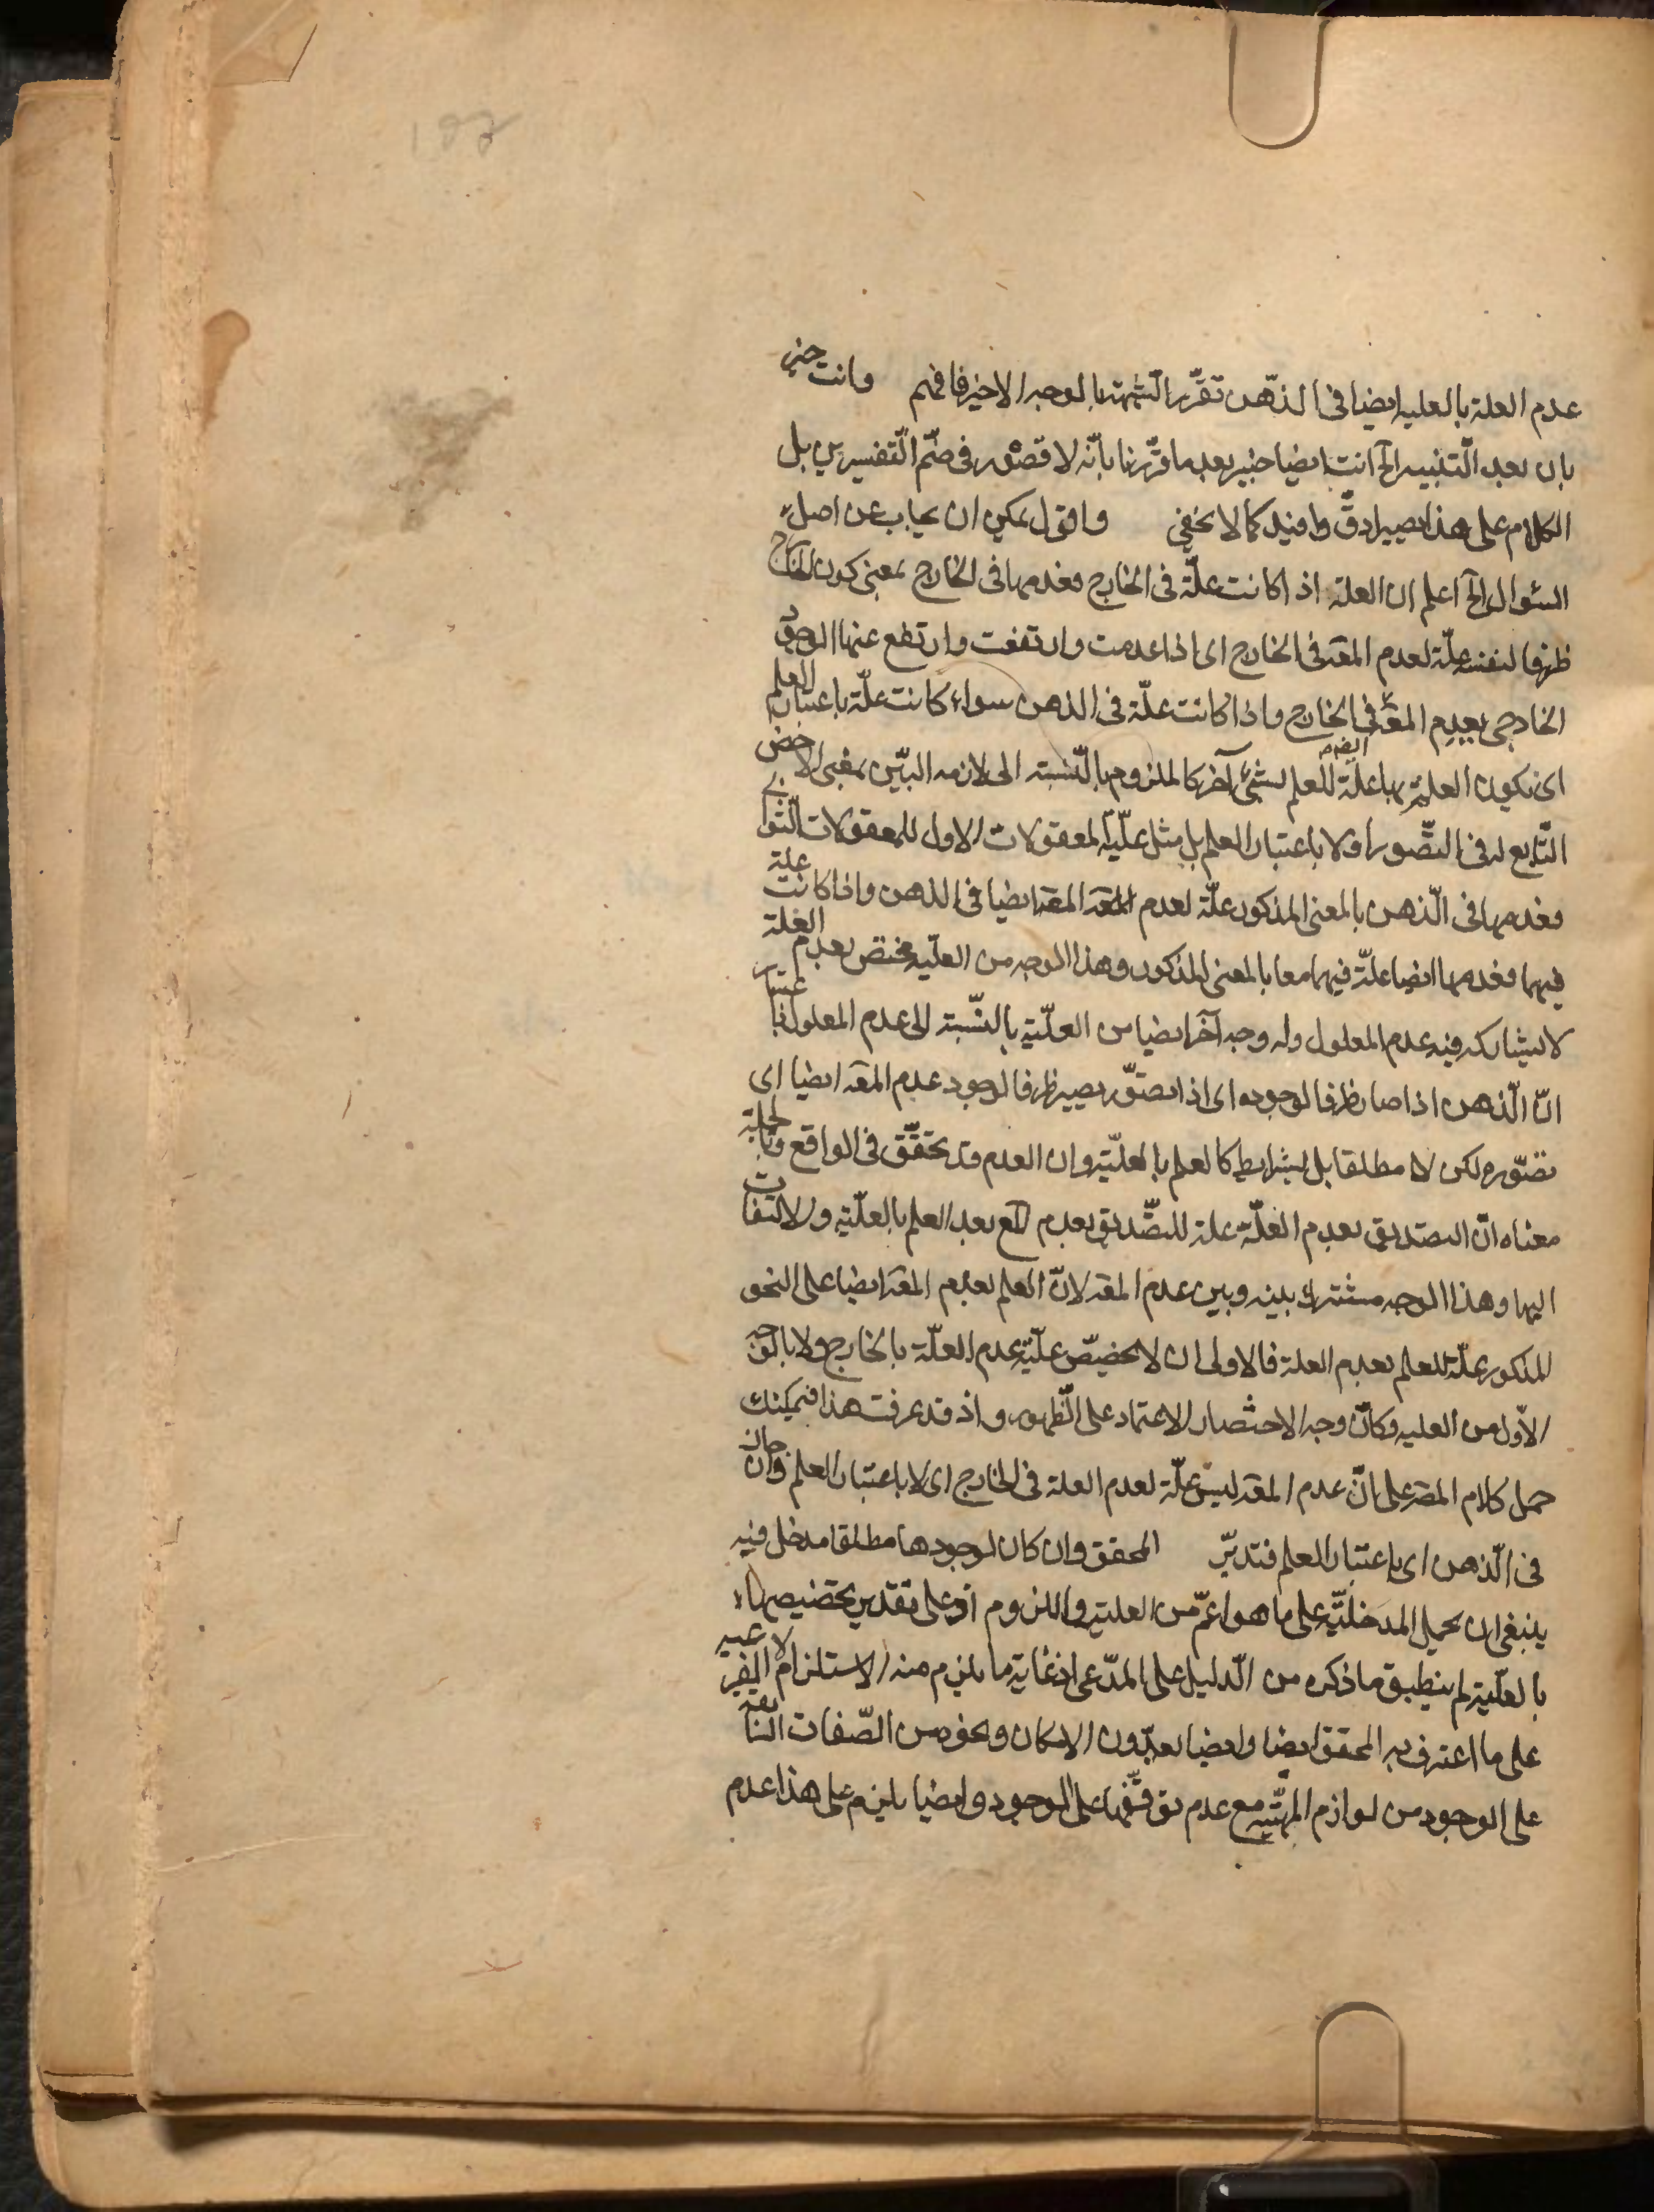 عدم العلة بالعليه ايضا فى الذّهن تقرّر الشّبهة بالوجه الاخير فافهم وانت خبير
بان بعد التّنبيه الخ انت ايضا خبير بعد ما قرّرنا بانّه لا قصور فى ضمّ التّفسيرين بل
الكلام على هذا يصير ادقّ وافيد كما لا يخفى واقول يمكن ان يجاب عن اصل
السّؤال الخ اعلم ان العلة اذا كانت علّة فى الخارج فعدمها فى الخارج بمعنى كون الخارج
ظرفا لنفسه علّة لعدم المعه فى الخارج اى اذا عدمت وارتفعت وارتفع عنها الوجود
الخارجى يعدم المعه فى الخارج واذا كانت علّة فى الذهن سواء كانت علّة باعتبار العلم
اى يكون العلم بها علّة للعلم بشئ آخر كالملزوم بالنّسبة الى لازمه البيّن بمعنى الاخص
التّابع له فى التّصور او لا باعتبار العلم بل مثل علّيّة المعقولات الاول للمعقولات الثّوانى
فعدمها فى الذّهن بالمعنى المذكور علّة لعدم المعه ايضا فى الذهن واذا كانت علة
فيهما فعدمها ايضا علّة فيهما معا بالمعنى المذكور وهذا الوجه من العلّيه مختص بعدم العلة
لا يشاركه فيه عدم المعلول وله وجه آخر ايضا من العلّية بالنّسبة الى عدم المعلول باعتبار
انّ الذّهن اذا صار ظرفا لوجوده اى اذا تصوّر يصير ظرفا لوجود عدم المعه ايضا اى
تصّوره لكن لا مطلقا بل بشرايط كالعلم بالعلّية وان العدم قد تحقّق فى الواقع وبالجملة
معناه انّ التصديق بعدم العلّة علة للتصّديق بعدم المع بعد العلم بالعلّية والالتفات
اليها وهذا الوجه مشترك بينه وبين عدم المعه لانّ العلم بعدم المعه ايضا على النحو
المذكور علّة للعلم بعدم العلة فالاولى ان لا يخصّص علّية عدم العلّة بالخارج ولا بالوجه
الاّول من العليه وكانّ وجه الاختصار الاعتماد على الظّهور واذ قد عرفت هذا فيمكنك
حمل كلام المصه على انّ عدم المعه ليس علّة لعدم العلة فى الخارج اى لا باعتبار العلم وان جاز
فى الذّهن اى باعتبار العلم فتدبّر المحقق وان كان لوجودها مطلقا مدخل فيه
ينبغى ان يحمل المدخليّة على ما هو اعمّ من العلية واللزوم اذ على تقدير تخصيصها
بالعلّية لم ينطبق ما ذكره من الدّليل على المدّعى اذ غاية ما يلزم منه الاستلزام لا غير
على ما اعترف به المحقق ايضا وايضا يعدّون الامكان ونحوه من الصّفات السّابقة
على الوجود من لوازم المهيّة مع عدم توقّفها على الوجود وايضا يلزم على هذا عدم